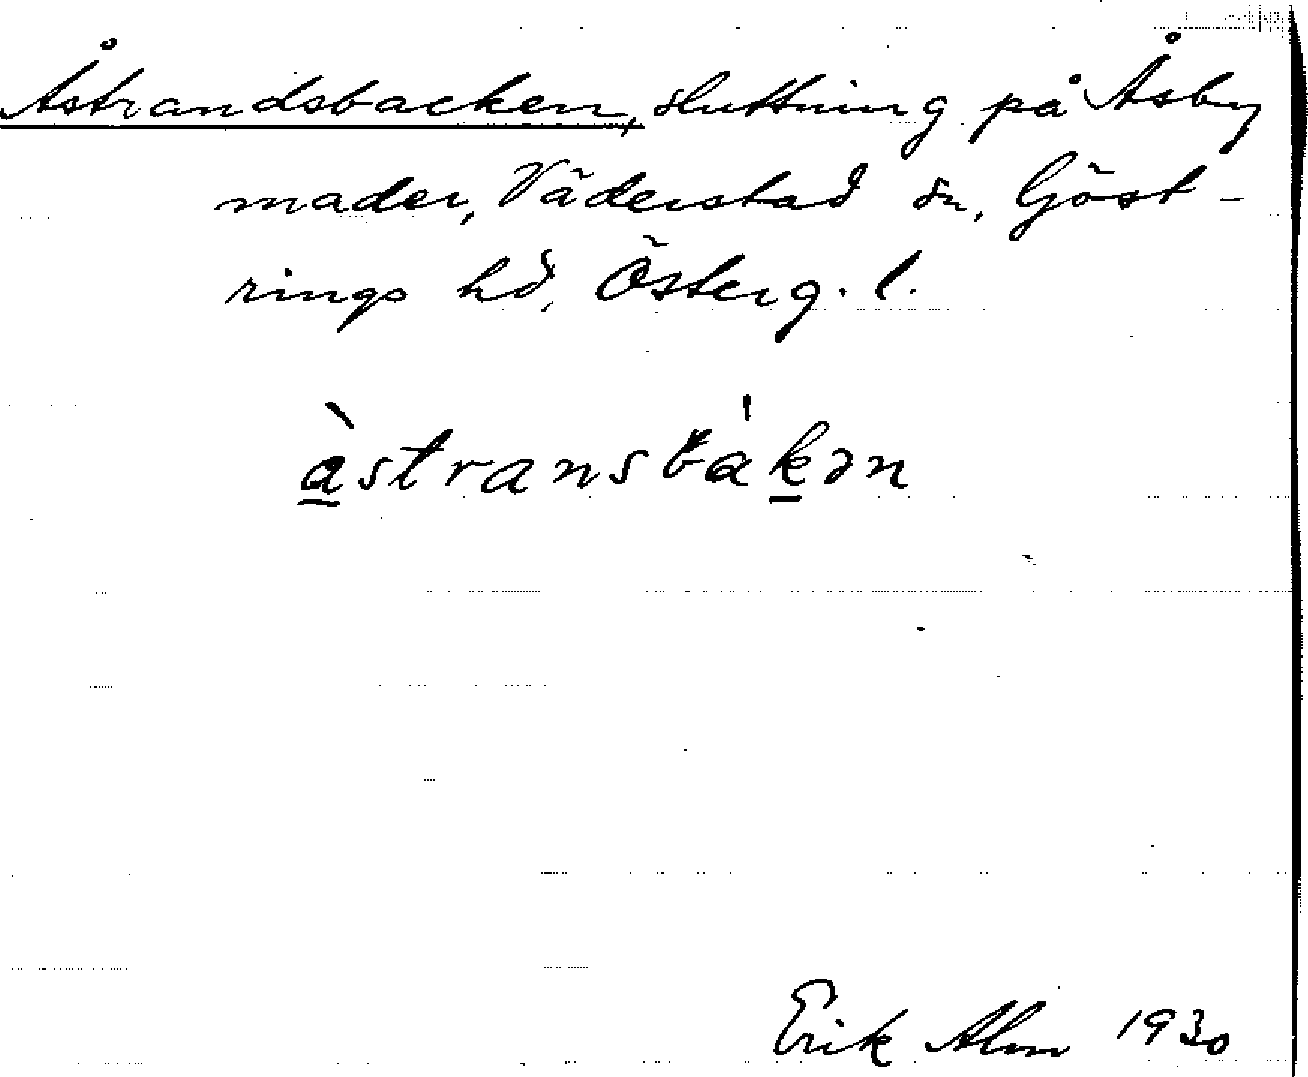 Åstrandsbacken, sluttning på Åsby
mader, Väderstad sn, Göst-
rings hd, Österg. l.
àstransbàkən
Erik Alm 1930